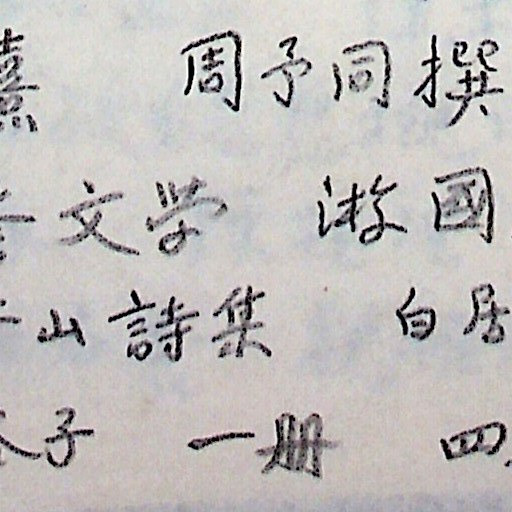 熹 周予同撰
文学 游國
山詩集 白居
子 一册 四